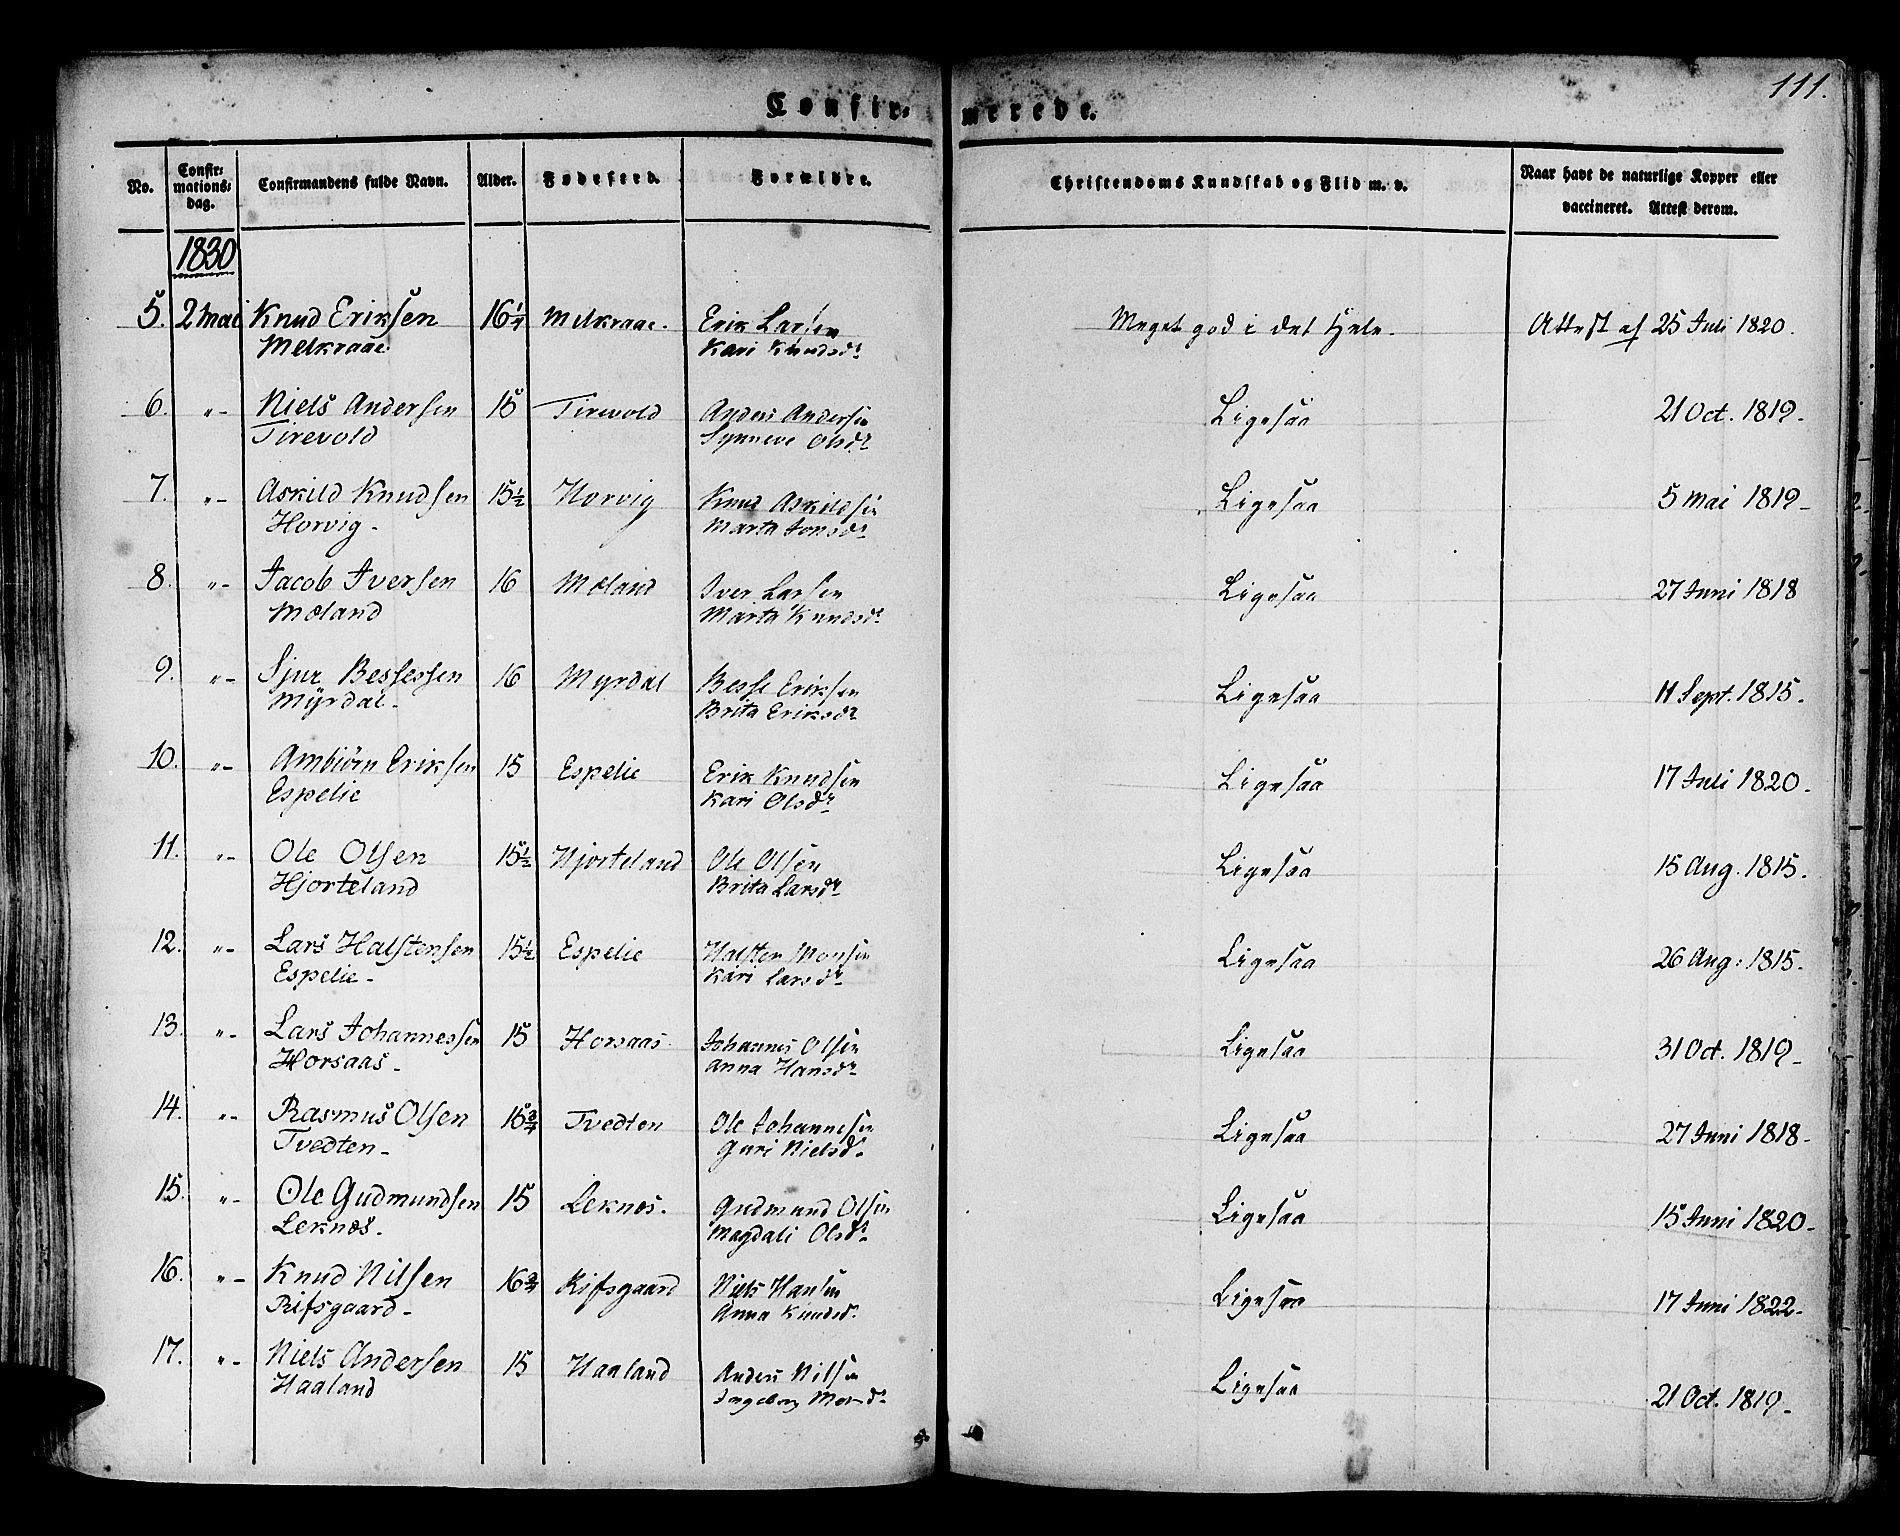 111.
Confir- merede.
No. Confir-mations-dag. Confirmandens fulde Navn. Alder. Fødested. Forældre. Christendoms Kundskab og Flid m. v. Naar havt de naturlige Kopper eller vaccineret. Attest derom.
1830
5. 2 Mai Knud Eriksen 16¼ Melkraae. Erik Larsen Meget god i det Hele. Attest af 25 Juli 1820.
Melkraae. Kari Knudsdr
6. "- Niels Andersen 15 Tirevold Anders Andersen Ligesaa 21 Oct. 1819.
Tirevold Synneve Olsdr
7. "- Askild Knudsen 15½ Horvig Knud Askildsen Ligesaa 5 Mai 1819-
Horvig- Marta Jonsdr
8. "- Jacob Iversen 16 Mæland Iver Larsen Ligesaa 27 Juni 1818
Mæland Marta Knudsdr
9. "- Sjur Bessessen 16 Myrdal Besse Eriksen Ligesaa 11 Sept. 1815.
Myrdal- Brita Eriksdr
10. "- Ambiörn Eriksen 15 Espelie Erik Knudsen Ligesaa 17 Juli 1820-
Espelie Kari Olsdr
11. "- Ole Olsen 15½ Hjorteland Ole Olsen Ligesaa 15 Aug. 1815.
Hjorteland Brita Larsdr
12. "- Lars Halstensen 15½ Espelie Halsten Monsen Ligesaa 26 Aug: 1815.
Espelie- Kari Larsdr
13. "- Lars Johannessen 15 Horsaas Johannes Olsen Ligesaa 31 Oct. 1819-
Horsaas- Anna Hansdr
14. "- Rasmus Olsen 15¾ Tvedten Ole Johannesen Ligesaa 27 Juni 1818-
Tvedten- Guri Nielsd.
15. "- Ole Gudmundsen 15 Leknæs. Gudmund Olsen Ligesaa 15 Juni 1820-
Leknæs- Magdali Olsdr
16. "- Knud Nilsen 16¾ Rifsgaard Niels Hansen Ligesaa 17 Juni 1822-
Rifsgaard- Anna Knudsd.
17. "- Niels Andersen 15 Haaland Anders Nilsen Ligesaa 21 Oct. 1819-
Haaland Ingeborg Monsdr